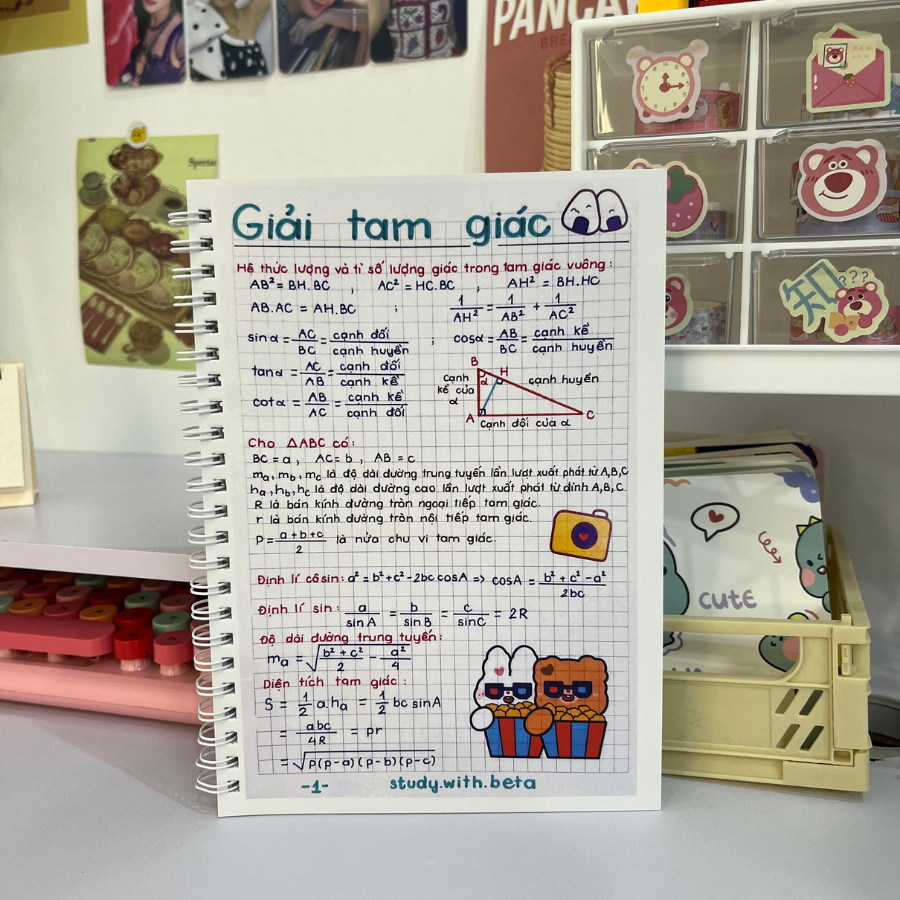 PANCA
BRE
Spectac
Giải tam giác
Hệ thức lượng và tỉ số lượng giác trong tam giác vuông:
AB² = BH.BC , AC² = HC.BC , AH² = BH.HC
AB.AC = AH.BC ; 1/AH² = 1/AB² + 1/AC²
sinα = AC/BC = cạnh đối/cạnh huyền ; cosα = AB/BC = cạnh kề/cạnh huyền
tanα = AC/AB = cạnh đối/cạnh kề
cotα = AB/AC = cạnh kề/cạnh đối
B
H
α
cạnh kề của α
cạnh huyền
A
C
Cạnh đối của α
Cho ΔABC có:
BC = a , AC = b , AB = c
mₐ, m_b, m_c là độ dài đường trung tuyến lần lượt xuất phát từ A,B,C
hₐ, h_b, h_c là độ dài đường cao lần lượt xuất phát từ đỉnh A,B,C
R là bán kính đường tròn ngoại tiếp tam giác.
r là bán kính đường tròn nội tiếp tam giác.
P = (a+b+c)/2 là nửa chu vi tam giác.
Định lí côsin: a² = b² + c² - 2bc cosA => cosA = (b² + c² - a²)/2bc
Định lí sin: a/sinA = b/sinB = c/sinC = 2R
Độ dài đường trung tuyến:
mₐ = √((b² + c²)/2 - a²/4)
Diện tích tam giác:
S = 1/2 a.hₐ = 1/2 bc sinA
= abc/4R = pr
= √(p(p-a)(p-b)(p-c))
-1-
study.with.beta
知
???
CUTE